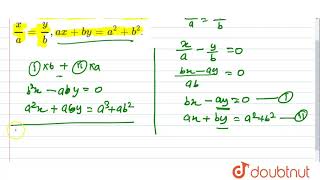 x/a = y/b, ax + by = a² + b².
Ⓘ×b + Ⓘ̲Ⓘ×a
b²x - aby = 0
a²x + aby = a³ + ab²
a = b
x/a - y/b = 0
bx - ay / ab = 0
bx - ay = 0 — Ⓘ
ax + by = a² + b² — ⒾⒾ
doubtnut